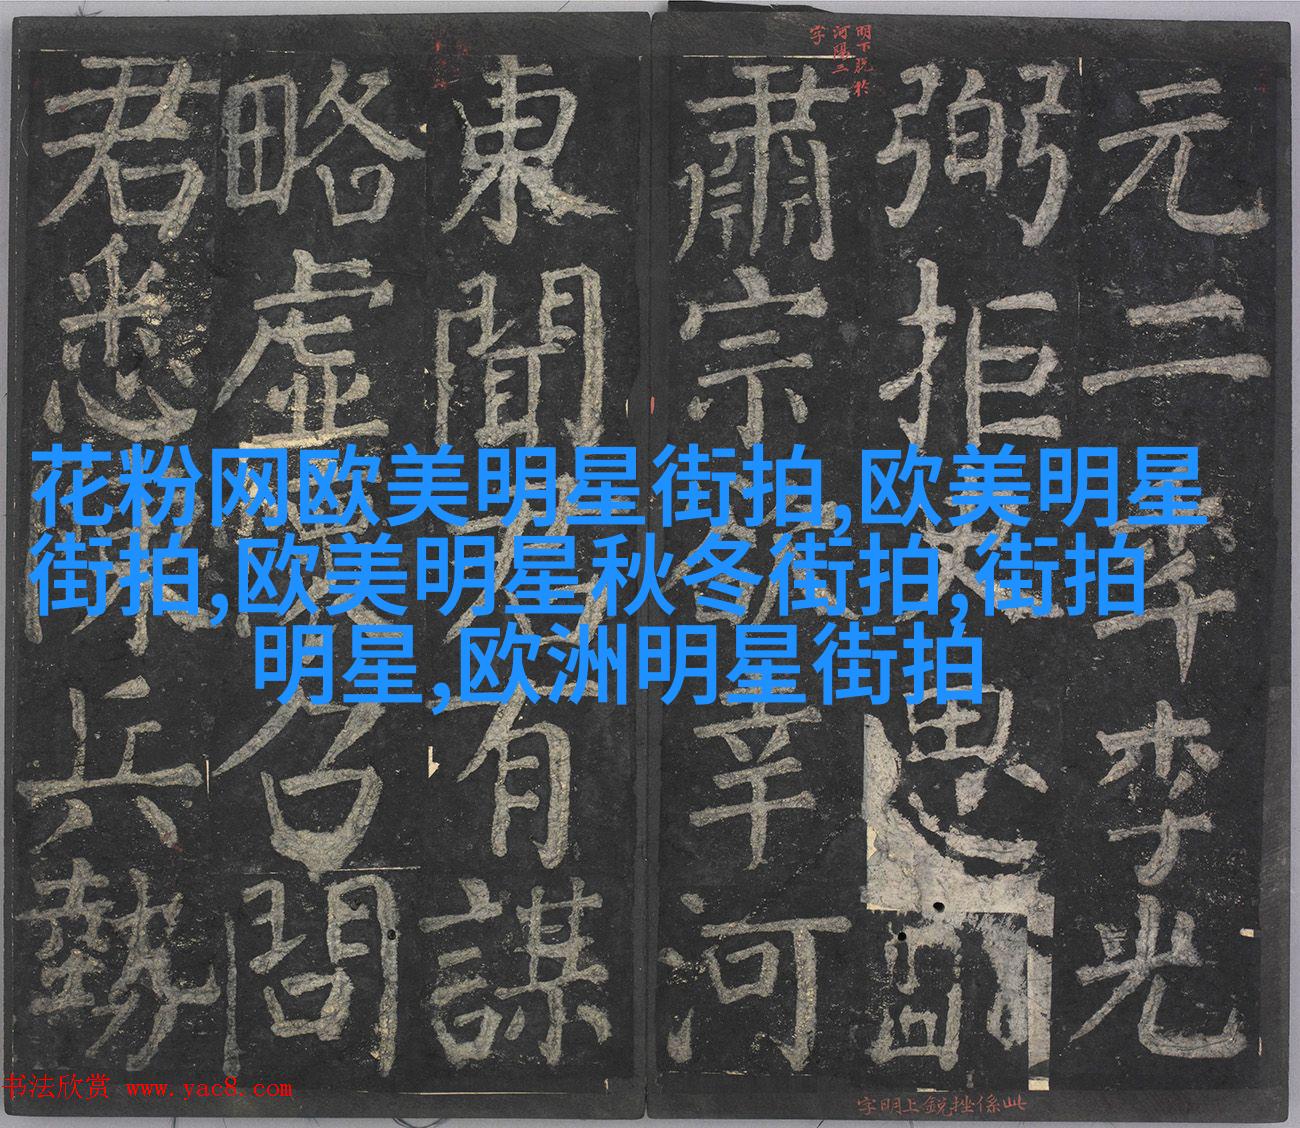 花粉网欧美明星街拍,欧美明星
街拍,欧美明星秋冬街拍,街拍
明星,欧洲明星街拍
元二年李光
弼拒思
肅宗辛河
東聞有謀
略虛召問
君悉陳兵勢
明下脫於
河陽二
字
此係挫銳上明字
书法欣赏 www.yac8.com